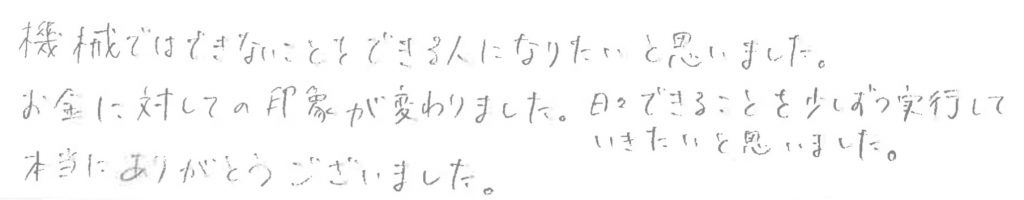 機械ではできないことをできる人になりたいと思いました。
お金に対しての印象が変わりました。日々できることを少しずつ実行して
いきたいと思いました。
本当にありがとうございました。